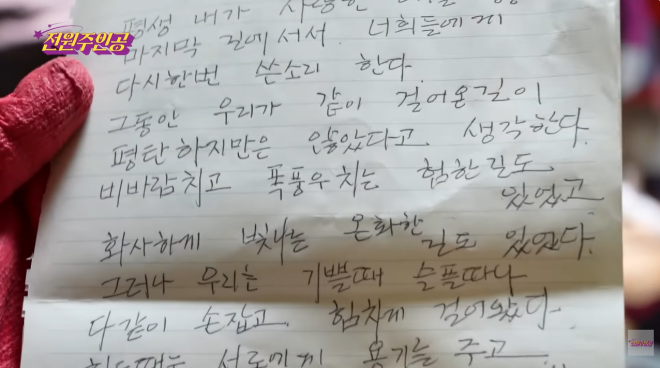 전원주인공
평생 내가 사랑한
마지막 길에 서서. 너희들에게
다시한번 쓴소리 한다.
그동안 우리가 같이 걸어온길이
평탄하지만은 않았다고 생각한다.
비바람치고 폭풍우치는 험한길도
있었고
화사하게 빛나는 온화한 길도 있었다.
그러나 우리는 기쁠때 슬플따나
다같이 손잡고 힘차게 걸어왔다.
서로에게 용기를 주고